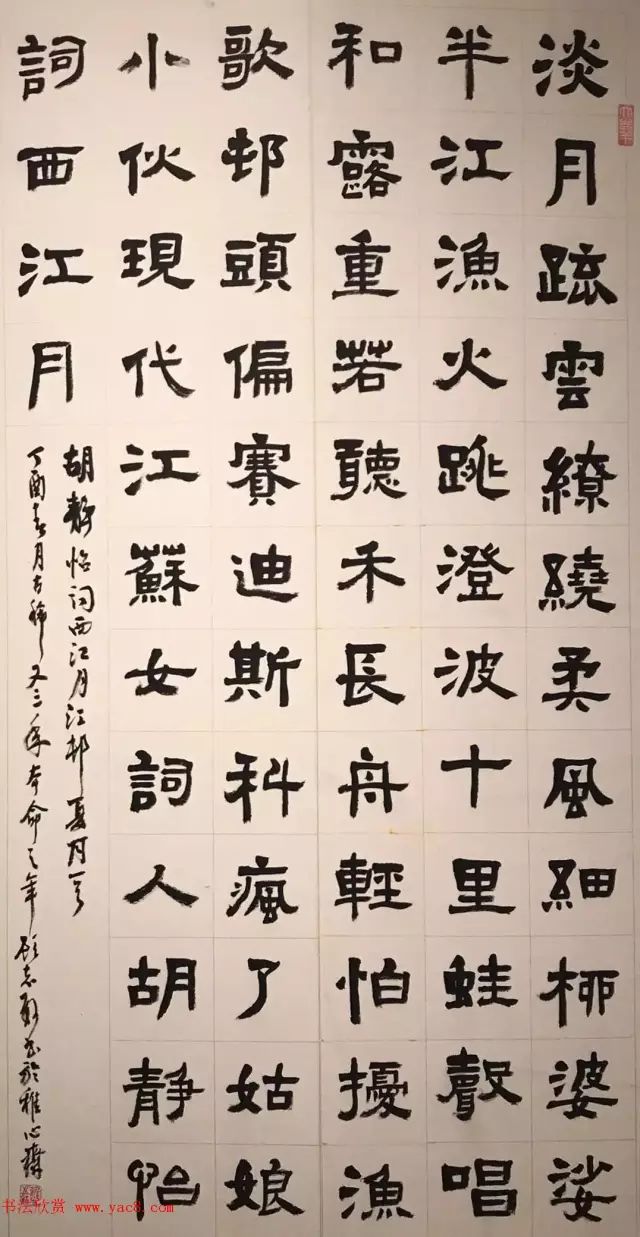 淡月疏雲繚繞柔風細柳婆娑
半江漁火跳澄波十里蛙聲唱
和露重若聽禾長舟輕怕擾漁
歌邨頭偏賽迪斯科瘋了姑娘
小伙現代江蘇女詞人胡靜怡
詞西江月
胡靜怡詞西江月江邨夏
丁酉春月古稀又三年本命之年 志書於雅心齋
书法欣赏 www.yac8.com